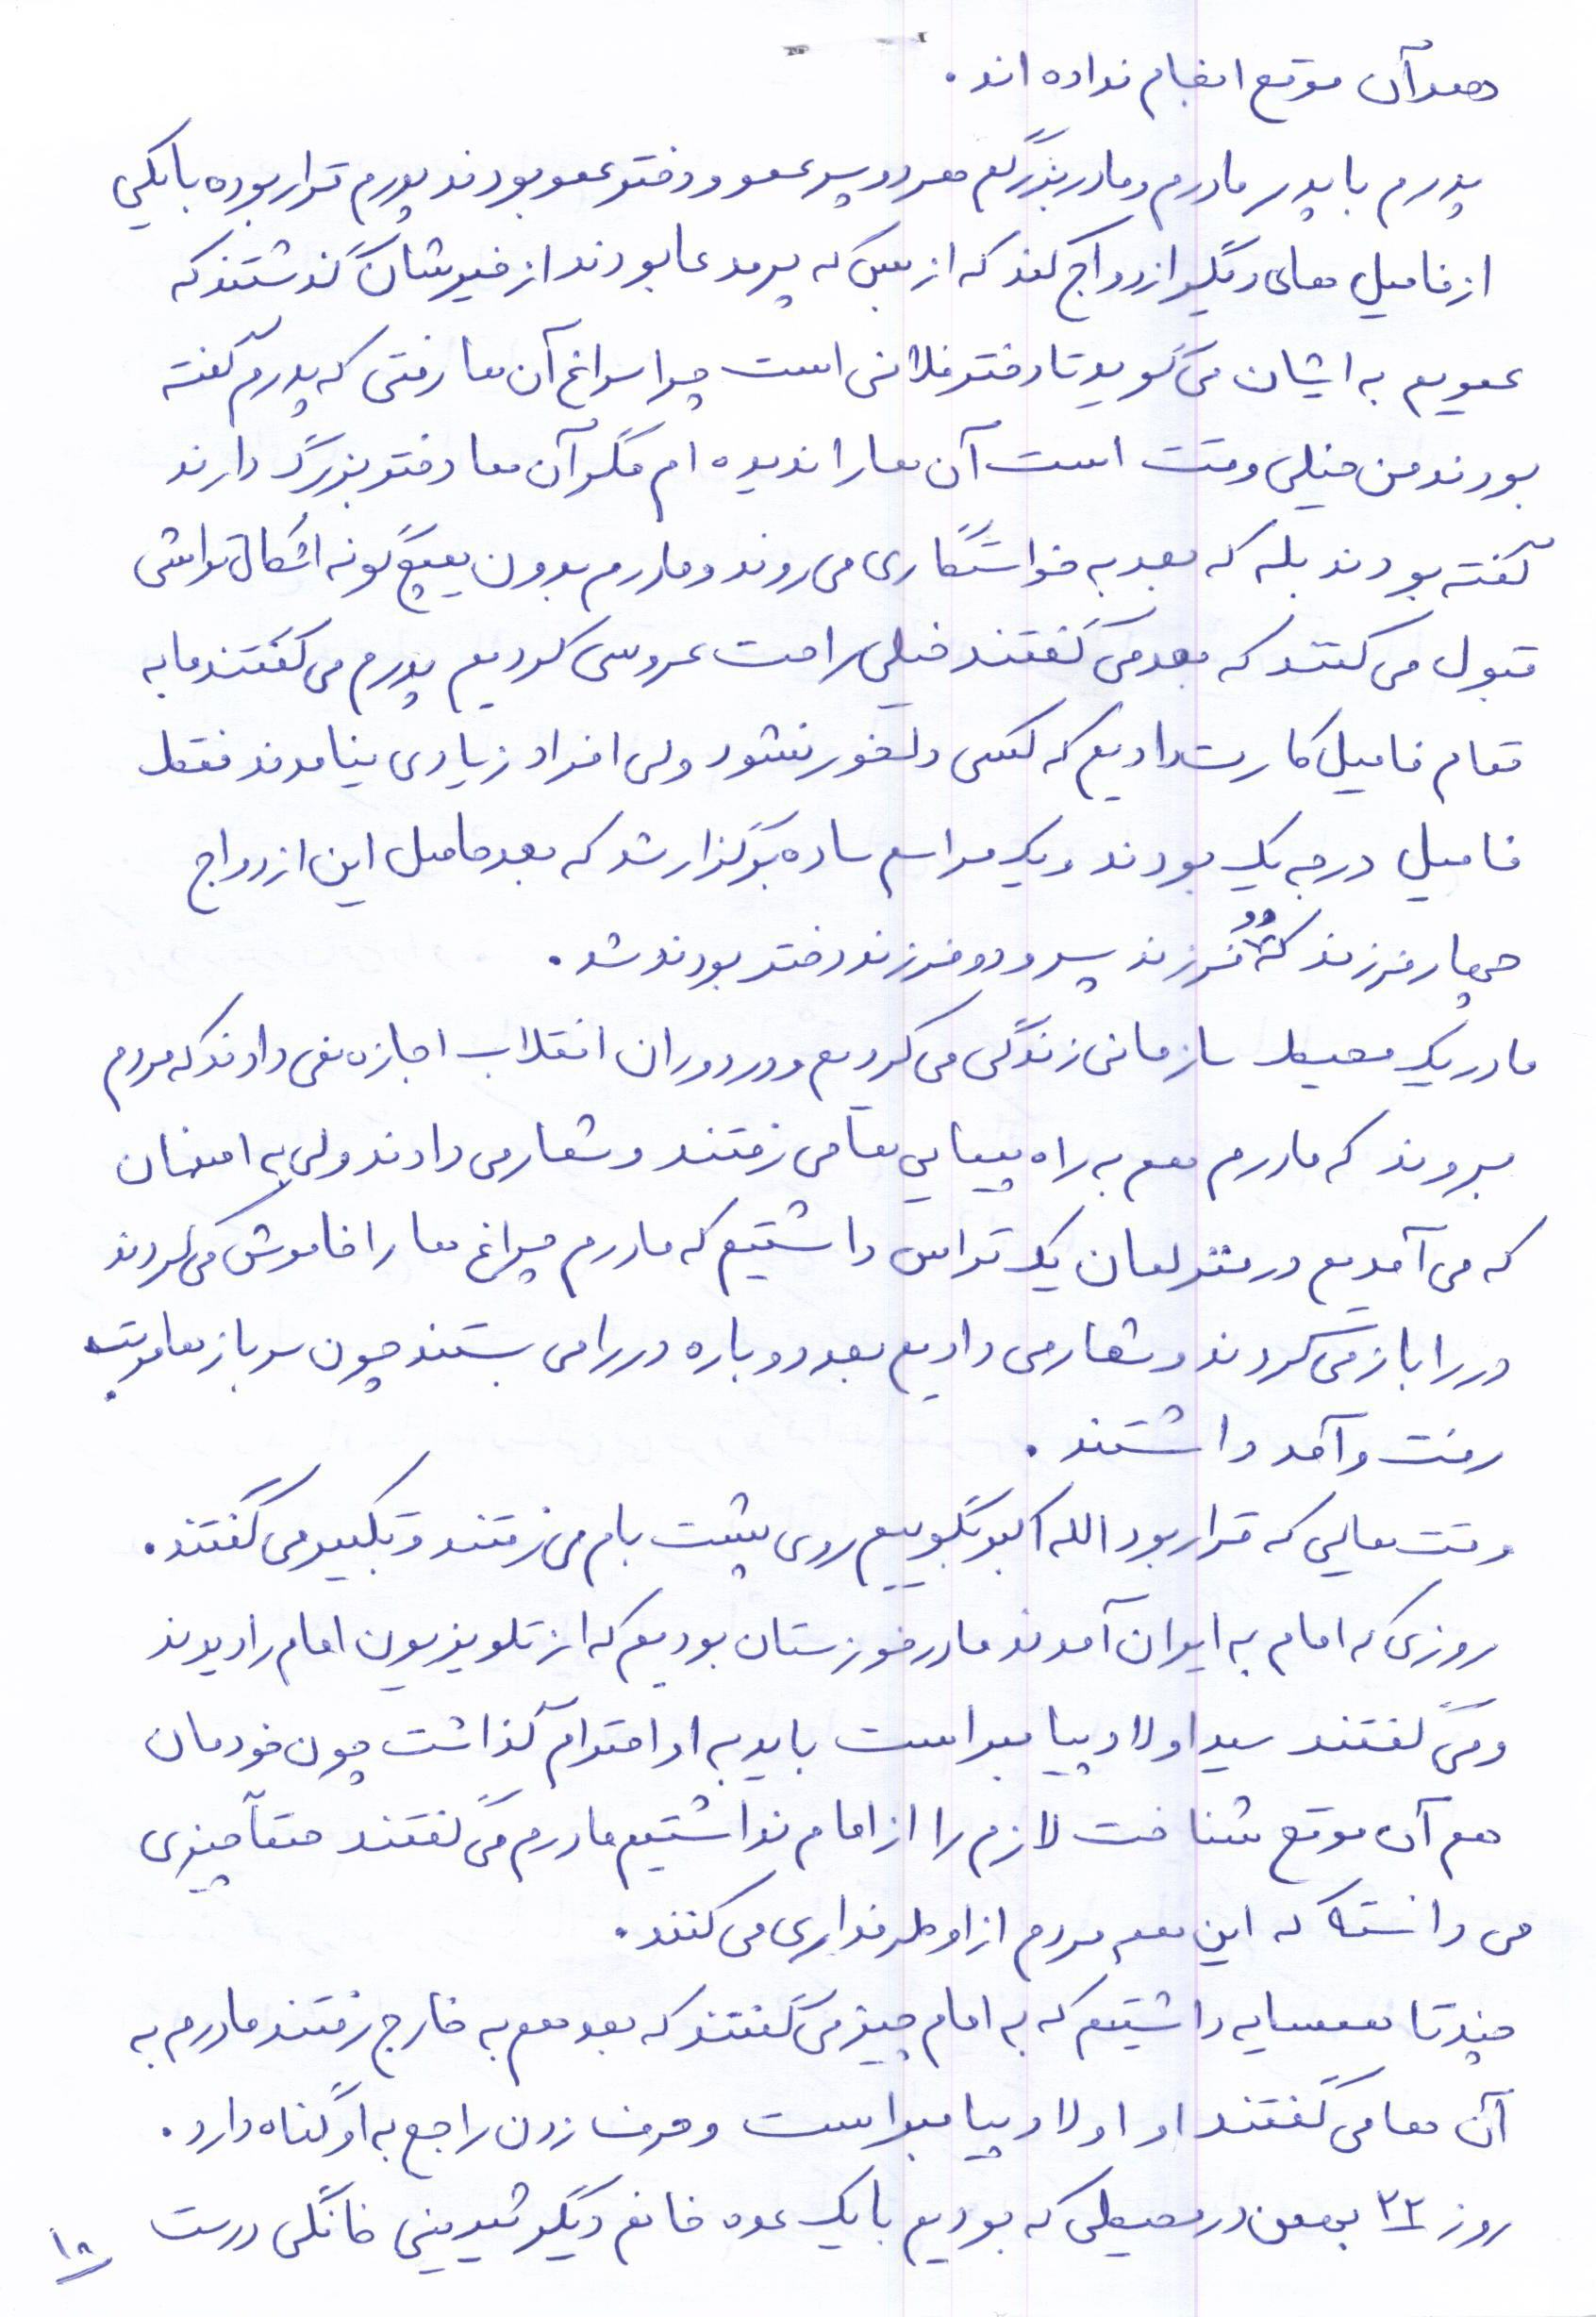 هم آن موقع انجام نداده اند.
پدرم با پدر مادرم و مادربزرگم هر دو پسر عمو و دختر عمو بودند پدرم قرار بوده با یکی
از فامیل های دیگر ازدواج کند که از بس که پر مدعا بودند از خیرشان گذشتند که
عمویم به ایشان می گوید تا دختر فلانی است چرا سراغ آن ها رفتی که پدرم گفته
بودند من خیلی وقت است آن ها را ندیده ام مگر آن ها دختر بزرگ دارند
گفته بودند بله که بعد به خواستگاری می روند و مادرم بدون هیچ گونه اشکال تراشی
قبول می کنند که بعد می گفتند خیلی راحت عروسی کردیم پدرم می گفتند ما به
تمام فامیل کارت دادیم که کسی دلخور نشود ولی افراد زیادی نیامدند فقط
فامیل درجه یک بودند و یک مراسم ساده برگزار شد که بعد حاصل این ازدواج
چهار فرزند که دو فرزند پسر و دو فرزند دختر بودند شد.
ما در یک محیط سازمانی زندگی می کردیم و در دوران انقلاب اجازه نمی دادند که مردم
بیروند که مادرم هم به راه پیمایی ها می رفتند و شعار می دادند ولی به
که می آمدیم در منزلمان یک تراس داشتیم که مادرم چراغ ها را خاموش می کردند
در را باز می کردند و شعار می دادیم بعد دوباره در را می بستند چون سرباز ها مرتب
رفت و آمد داشتند.
وقت هایی که قرار بود الله اکبر بگوییم روی پشت بام می رفتند و تکبیر می گفتند.
روزی که امام به ایران آمدند ما در خوزستان بودیم که از تلویزیون امام را دیدند
و می گفتند سید اولاد پیامبر است باید به او احترام گذاشت چون خودمان
هم آن موقع شناخت لازم را از امام نداشتیم مادرم می گفتند حتماً چیزی
می دانسته که این همه مردم از او طرفداری می کنند.
چند تا همسایه داشتیم که به امام چیز می گفتند که بعد هم به خارج رفتند مادرم به
آن ها می گفتند او اولاد پیامبر است و حرف زدن راجع به او گناه دارد.
روز ۲۲ بهمن در محیطی که بودیم با یک عده خانم دیگر شیرینی خانگی درست